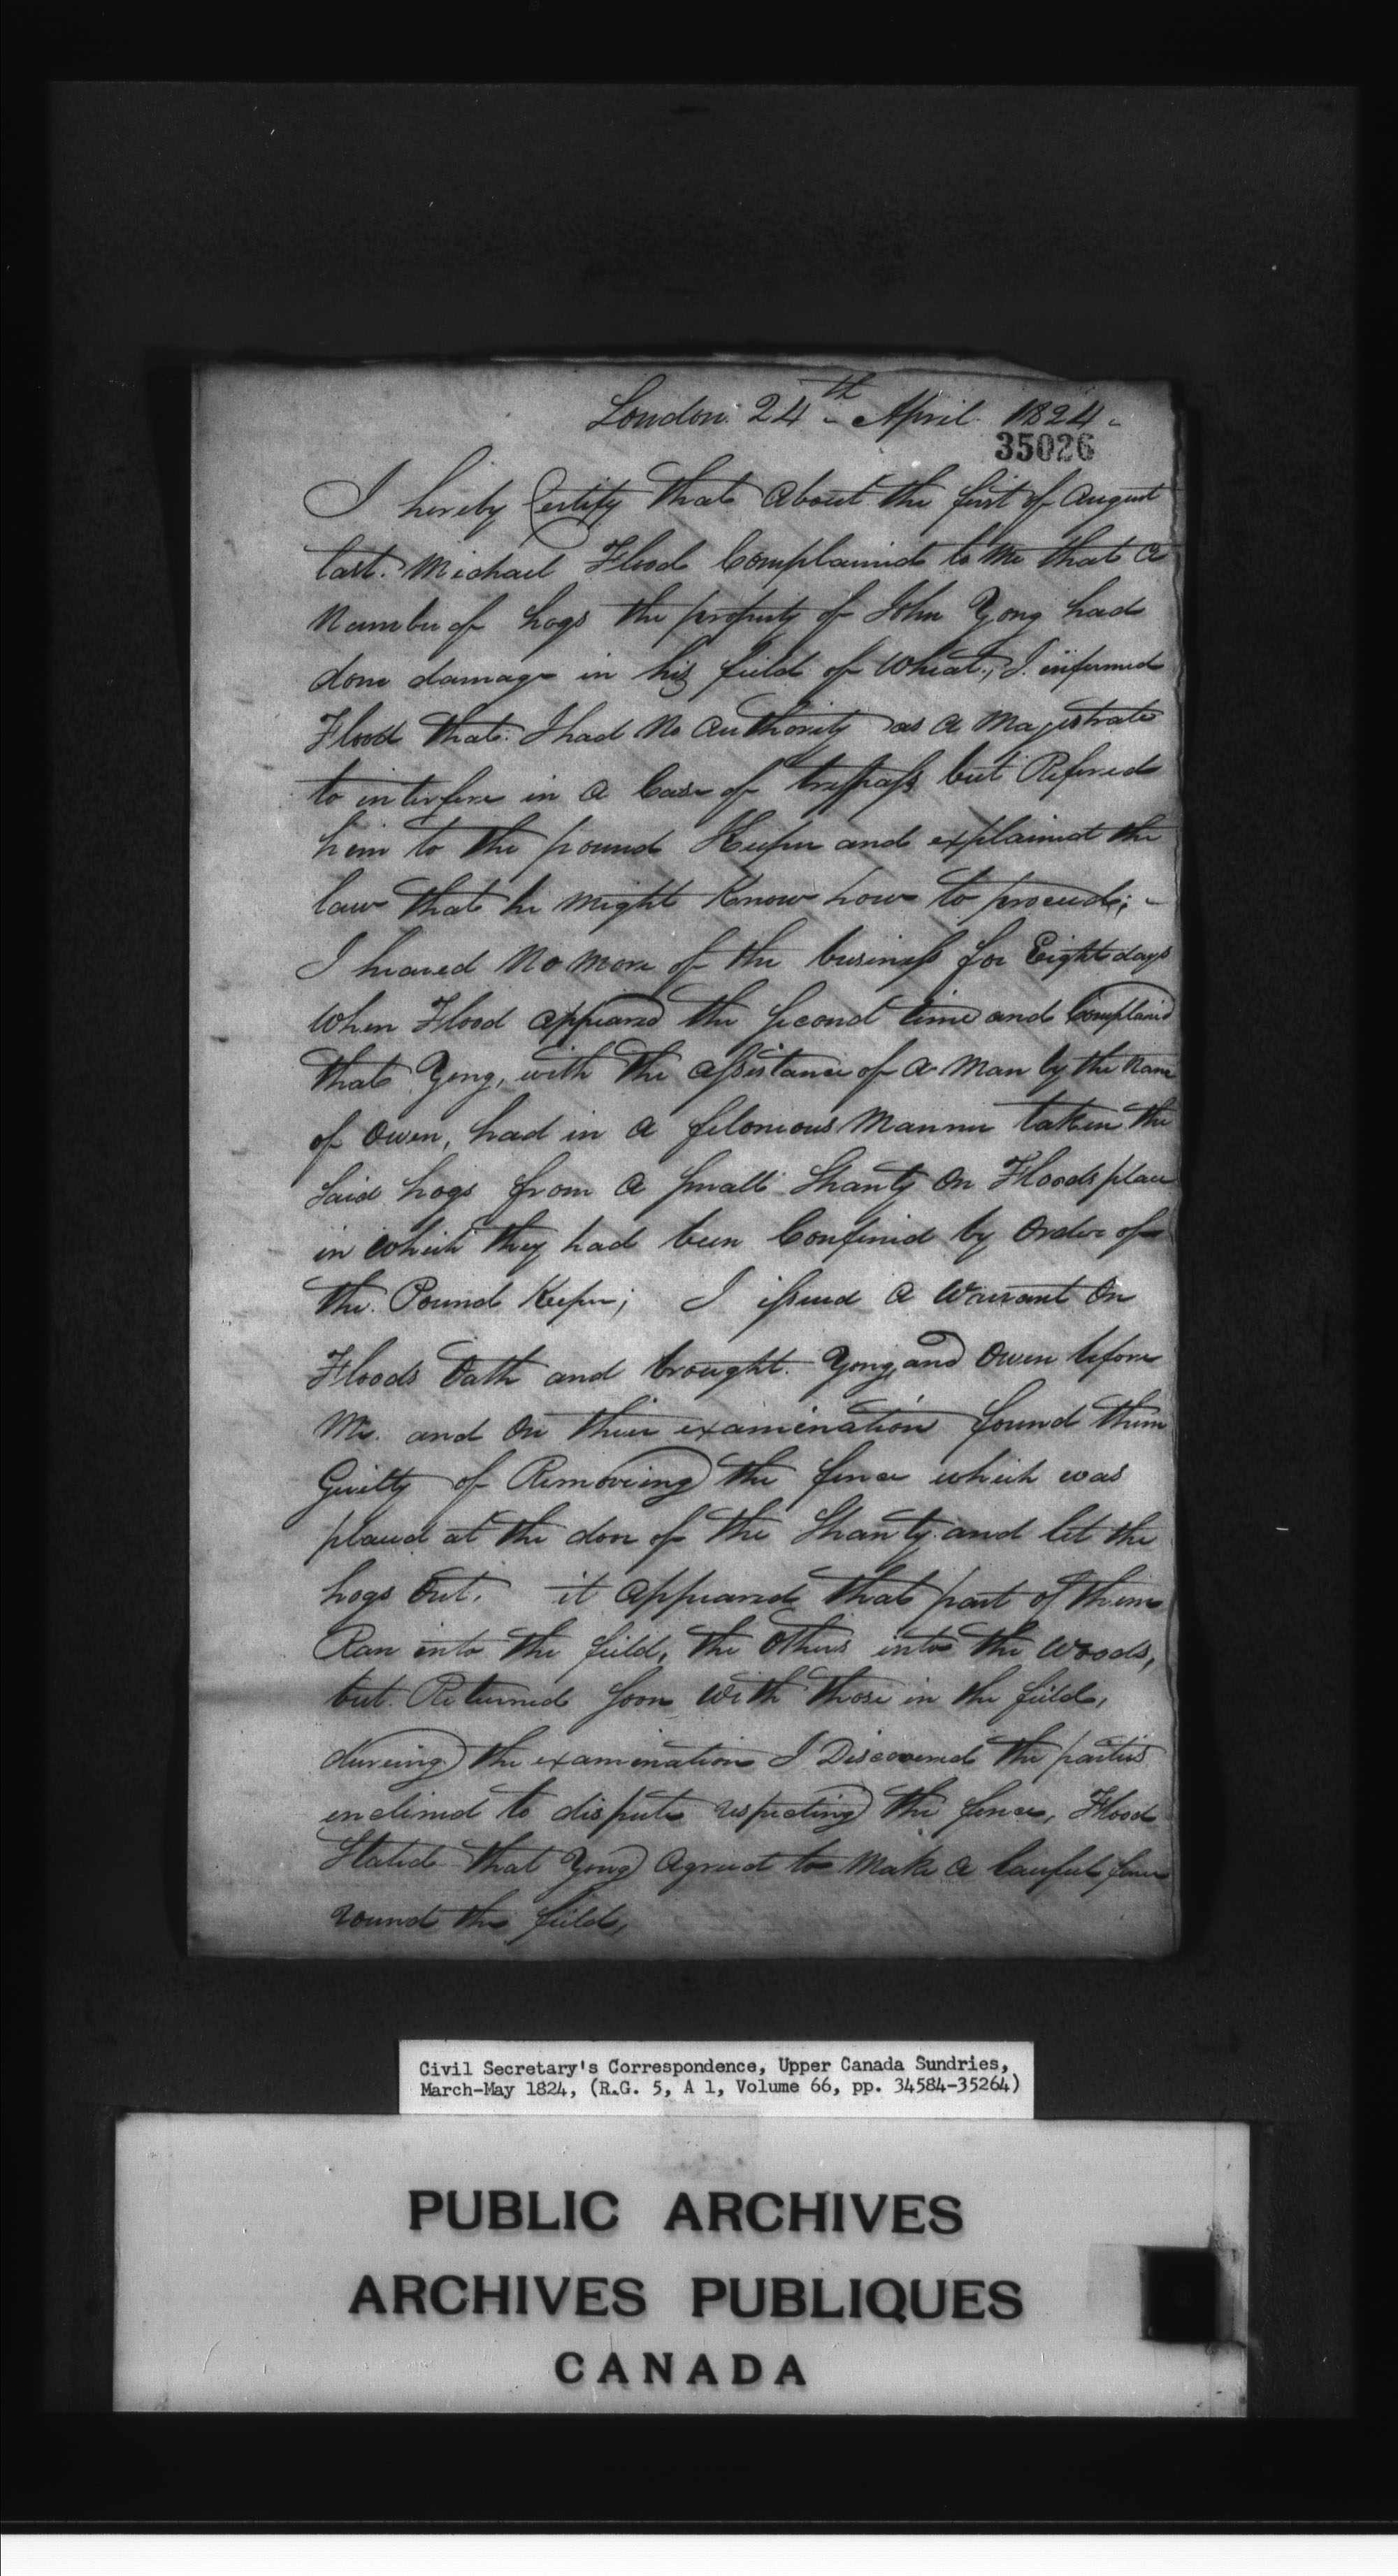 London 24th April 1824
35026
I hereby Certify that about the first of August
last. Michael Flood Complained to me that a
Number of hogs the property of John Yong had
done damage in his field of Wheat, I informed
Flood that I had No authority as a Magistrate
to interfere in a Case of trespass but Refered
him to the pound Keeper and explained the
law that he might Know how to proceed; -
I heared No more of the business for Eight days
When Flood appeared the Second time and Complaind
that Yong, with the assistance of a Man by the Name
of Owen, had in a felonious Manner taken the
Said hogs from a Small Shanty On Floods place
in which they had been Confined by Order of
the Pound Keeper; I issued a Warrant On
Floods Oath and brought Yong and Owen before
Me. and On their examination found them
Guilty of Removeing the fence which was
placed at the door of the Shanty and let the
hogs Out. it appeared that part of them
Ran into the field, the Others into the Woods,
but Returned Soon With those in the field,
dureing the examination I Discovered the parties
enclined to dispute respecting the fence, Flood
Stated that Yong agreed to Make a lawful fence
round the field,
Civil Secretary's Correspondence, Upper Canada Sundries,
March-May 1824, (R.G. 5, A 1, Volume 66, pp. 34584-35264)
PUBLIC ARCHIVES
ARCHIVES PUBLIQUES
CANADA